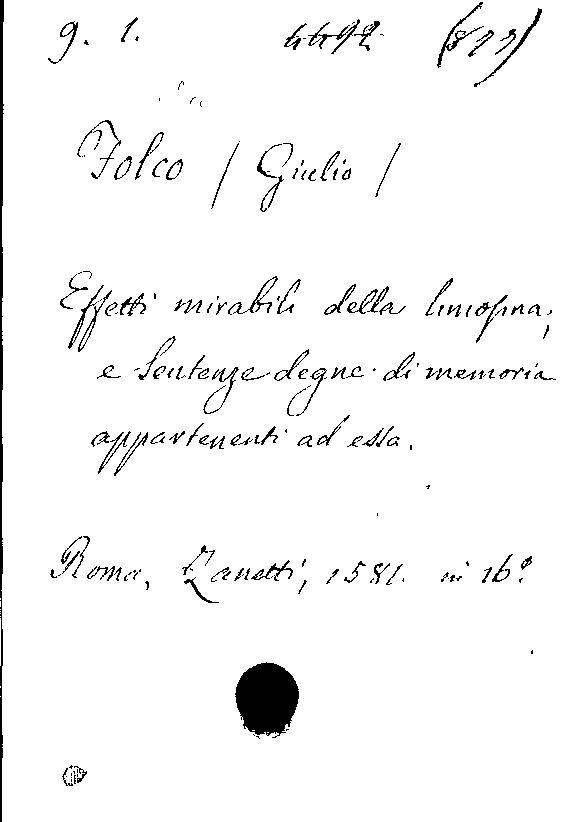 g. 1. 4492 (873)
Folco / Giulio /
Effetti mirabili della limosina,
e Sentenze degne di memoria
appartenenti ad essa.
Roma, Zanetti, 1581. in 16º.